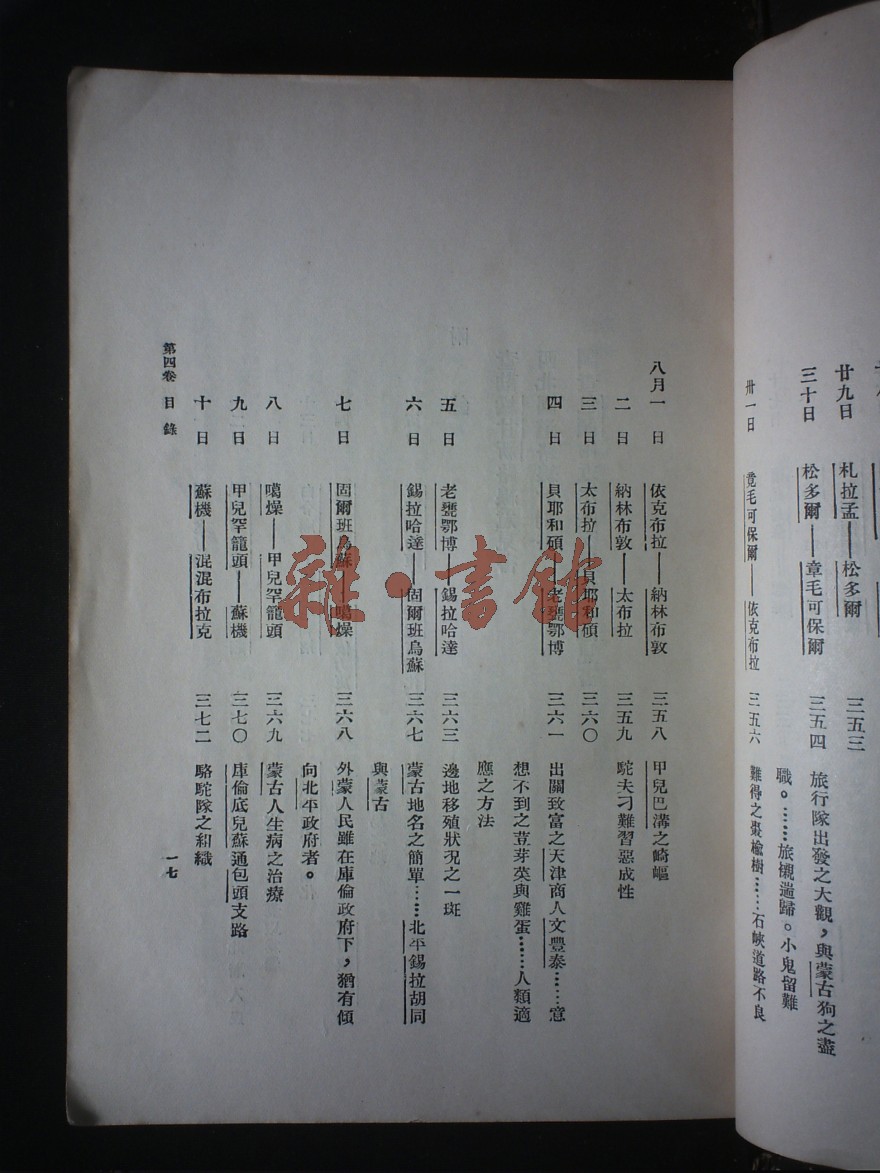 廿九日 札拉孟——松多爾 三五三
三十日 松多爾——章毛可保爾 三五四 旅行隊出發之大觀,與蒙古狗之盡
職。……旅襯遄歸。小鬼留難
卅一日 竟毛可保爾——依克布拉 三五六 難得之棗楡樹……石峽道路不良
八月一日 依克布拉——納林布敦 三五八 甲兒巴溝之崎嶇
二日 納林布敦——太布拉 三五九 駝夫刁難習惡成性
三日 太布拉——貝耶和碩 三六〇
四日 貝耶和碩——老甕鄂博 三六一 出關致富之天津商人文豐泰……意
想不到之荳芽菜與雞蛋……人類適
應之方法
五日 老甕鄂博——錫拉哈達 三六三 邊地移殖狀況之一斑
六日 錫拉哈達——固爾班烏蘇 三六七 蒙古地名之簡單……北平錫拉胡同
與蒙古
七日 固爾班烏蘇——噶燥 三六八 外蒙人民雖在庫倫政府下,猶有傾
向北平政府者。
八日 噶燥——甲兒罕籠頭 三六九 蒙古人生病之治療
九日 甲兒罕籠頭——蘇機 三七〇 庫倫底兒蘇通包頭支路
十日 蘇機——混混布拉克 三七二 駱駝隊之組織
第四卷 目錄
一七
雜·書館